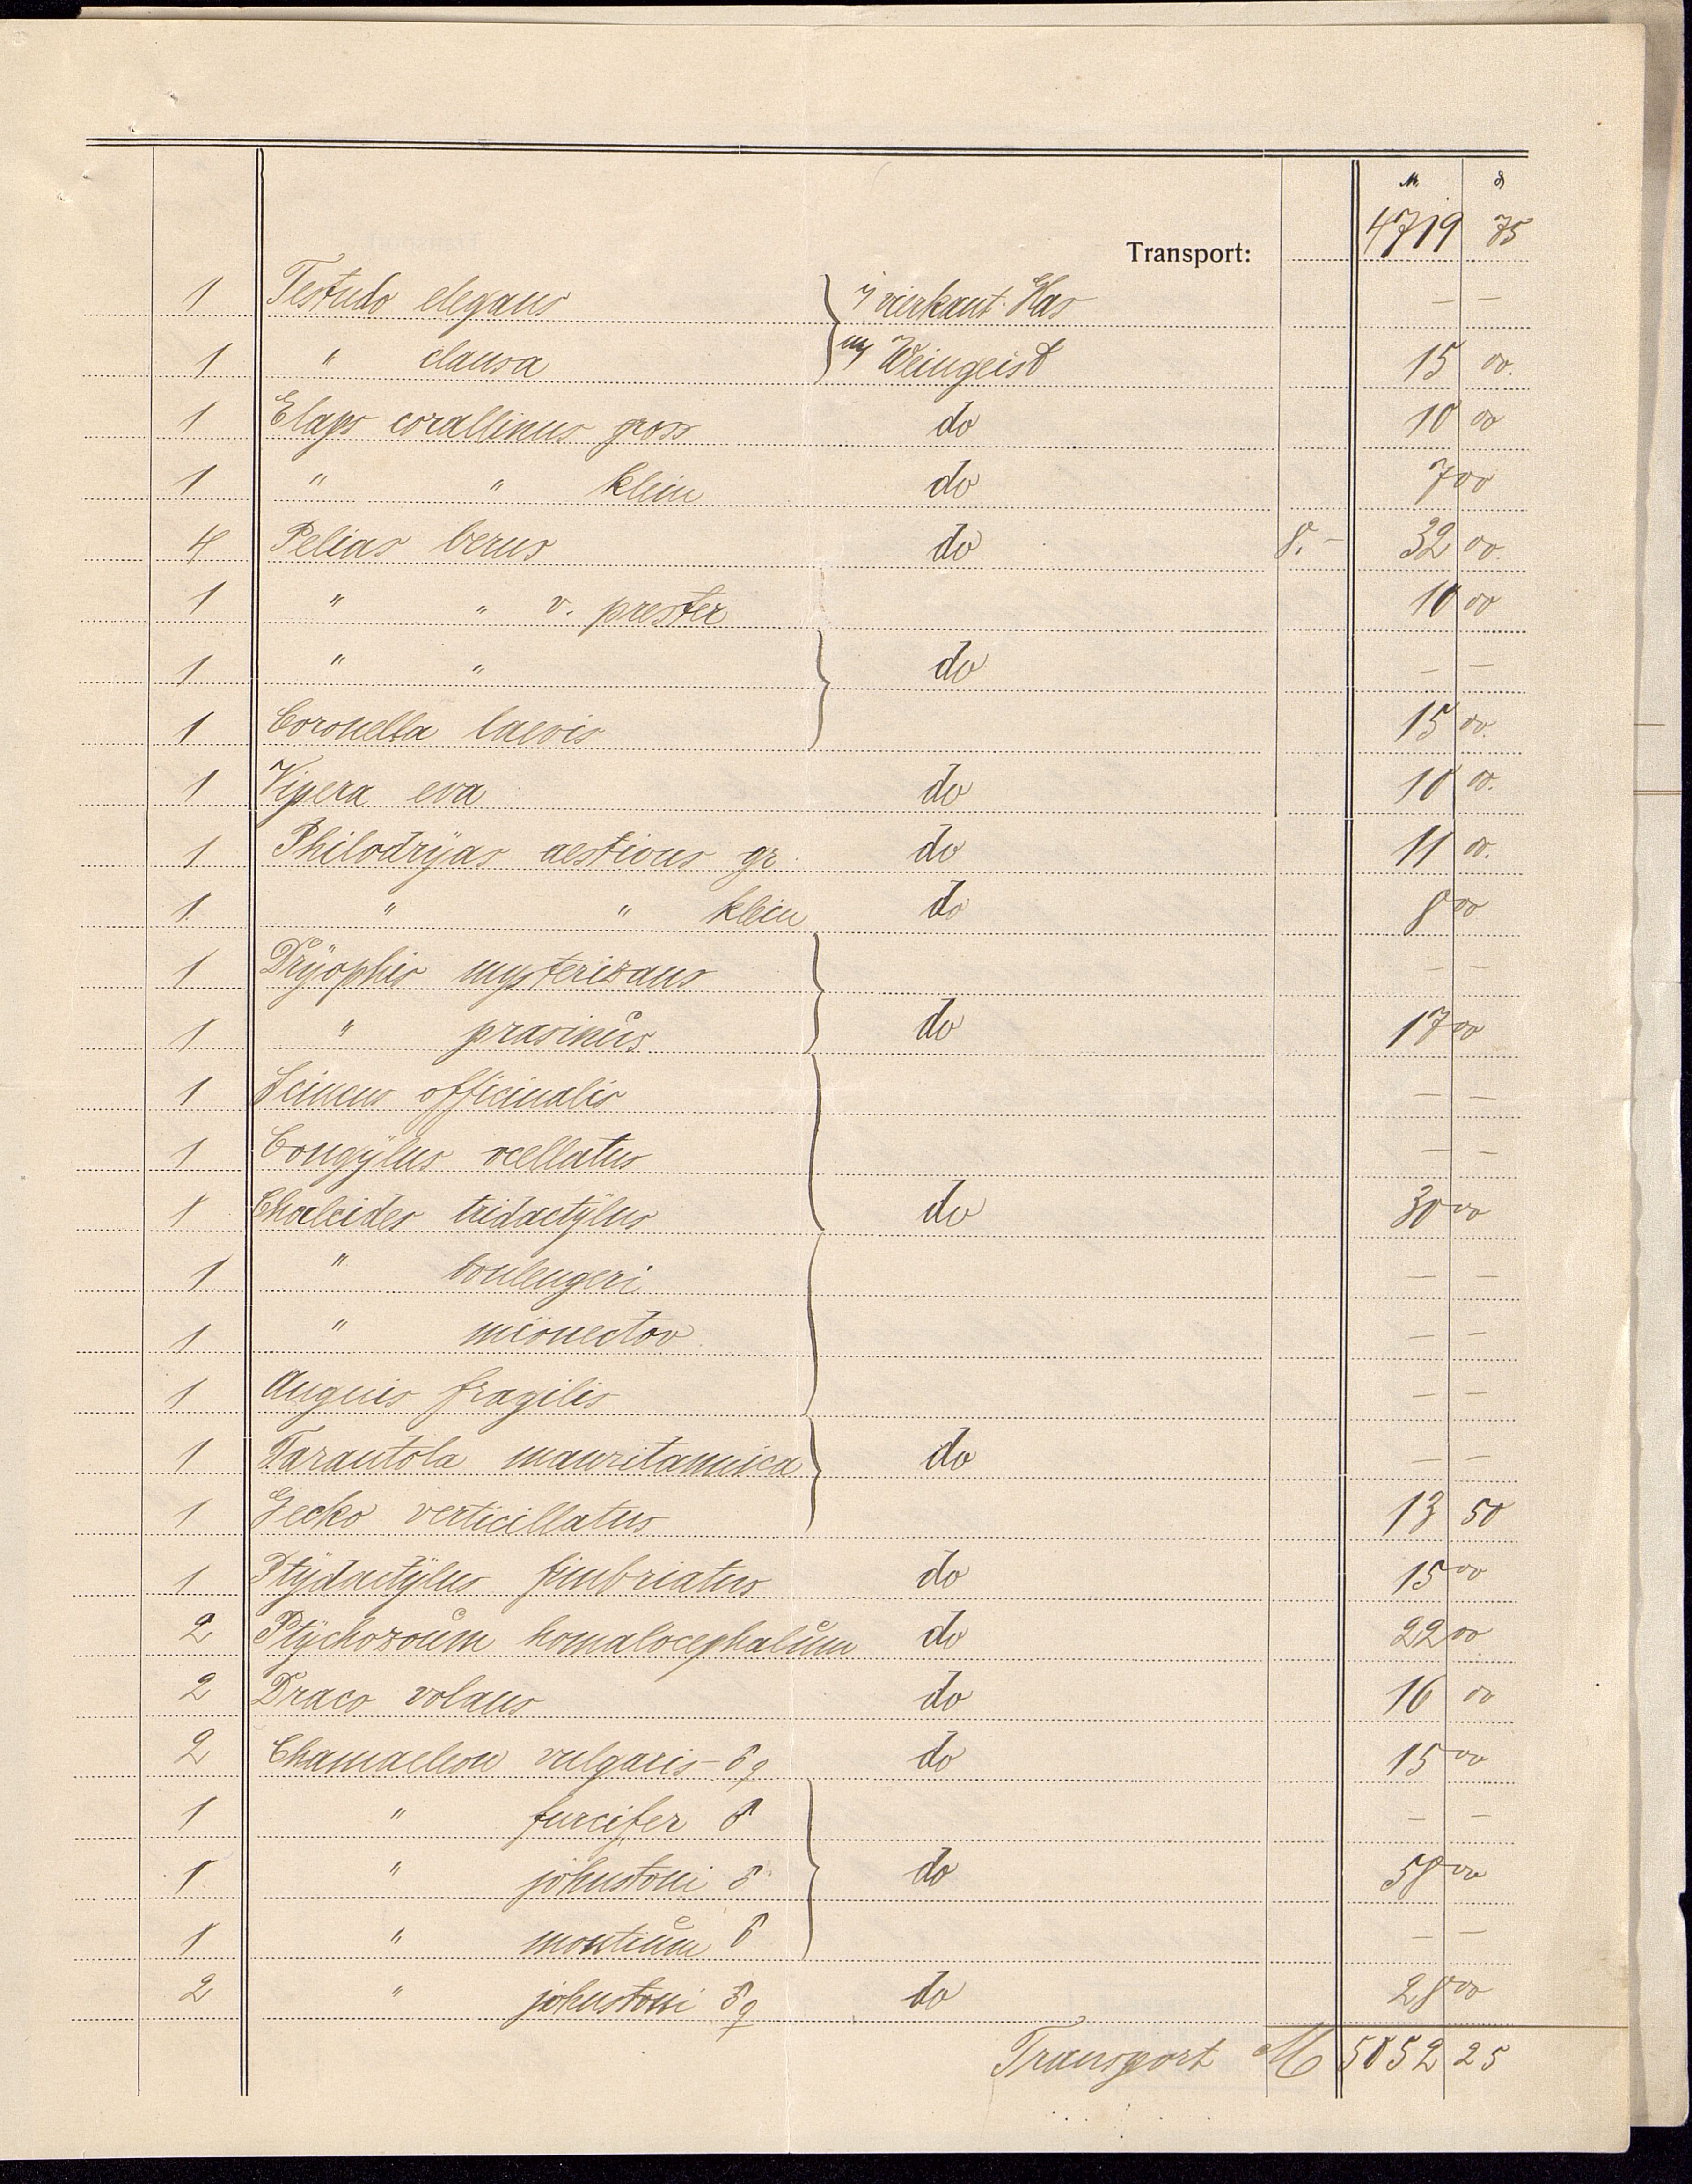 M. ₰
Transport: 4719 75
1 Testudo elegans } i/ vierkant. Glas — —
1 " clausa } m/ Weingeist 15 00.
1 Elaps corallinus gross do 10 00
1 " " klein do 7 00
4 Pelias berus do 8.- 32 00.
1 " " v. prester 10 00
1 " " } do — —
1 Coronella laevis 15 00.
1 Vipera eva do 10 00.
1 Philodryas aestivus gr. do 11 00.
1. " " klein do 8 00
1 Dryophis mysterizans } — —
1 " prasinus do 17 00
1 Scincus officinalis } — —
1 Gongylus ocellatus — —
1 Chalcides tridactylus do 30 00
1 " boulengeri } — —
1 " mionecton — —
1 Anguis fragilis — —
1 Tarantola mauritannica } do — —
1 Gecko verticillatus 13 50
1 Ptydactylus fimbriatus do 15 00
2 Ptychozoum homalocephalum do 22 00
2 Draco volans do 16 00
2 Chamaeleon vulgaris - ♂ ♀ do 15 00
1 " furcifer ♂ } — —
1 " johnstoni ♂ do 58 00
1 " montium ♂ — —
2 " johnstoni ♂ ♀ do 28 00
Transport M 5052 25